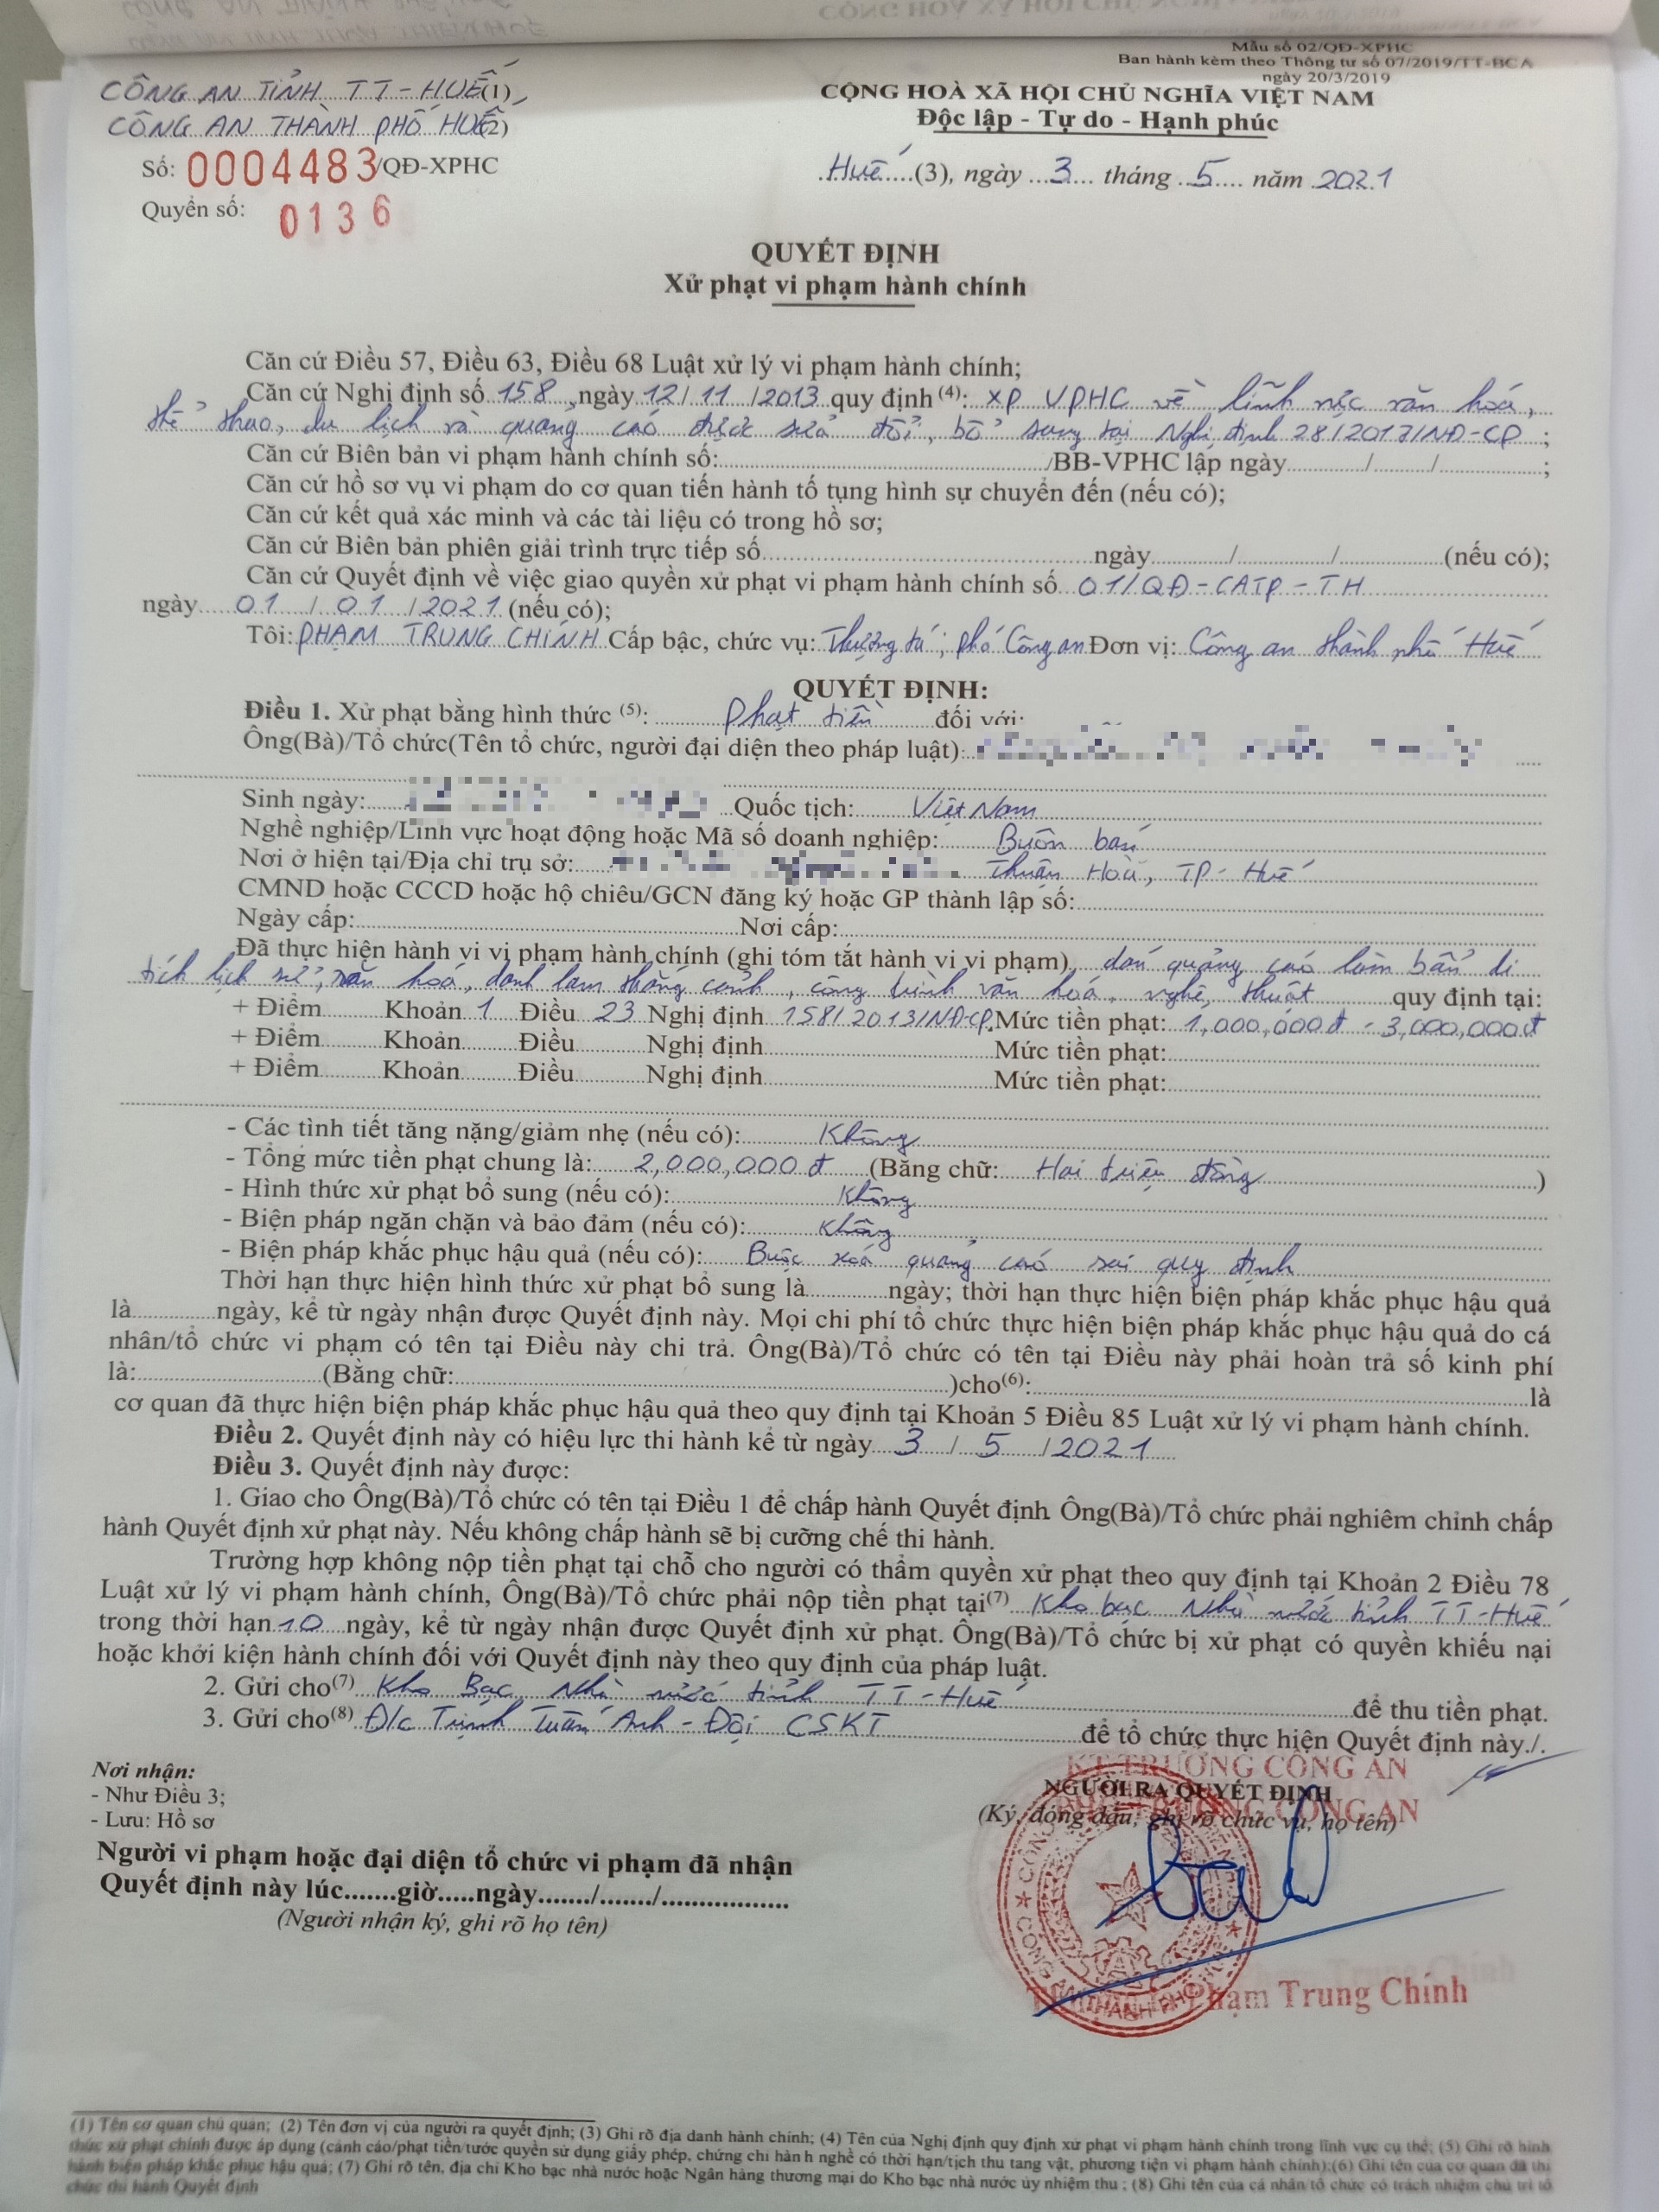 Mẫu số 02/QĐ-XPHC
Ban hành kèm theo Thông tư số 07/2019/TT-BCA
ngày 20/3/2019
CÔNG AN TỈNH TT-HUẾ(1)
CÔNG AN THÀNH PHỐ HUẾ(2)
Số: 0004483/QĐ-XPHC
Quyển số: 0136
CỘNG HOÀ XÃ HỘI CHỦ NGHĨA VIỆT NAM
Độc lập - Tự do - Hạnh phúc
Huế (3), ngày 3 tháng 5 năm 2021
QUYẾT ĐỊNH
Xử phạt vi phạm hành chính
Căn cứ Điều 57, Điều 63, Điều 68 Luật xử lý vi phạm hành chính;
Căn cứ Nghị định số 158 ngày 12/11/2013 quy định (4): XP VPHC về lĩnh vực văn hoá,
thể thao, du lịch và quảng cáo được sửa đổi, bổ sung tại Nghị định 28/2017/NĐ-CP;
Căn cứ Biên bản vi phạm hành chính số:............/BB-VPHC lập ngày......./......./............;
Căn cứ hồ sơ vụ vi phạm do cơ quan tiến hành tố tụng hình sự chuyển đến (nếu có);
Căn cứ kết quả xác minh và các tài liệu có trong hồ sơ;
Căn cứ Biên bản phiên giải trình trực tiếp số............ngày......../......../........(nếu có);
Căn cứ Quyết định về việc giao quyền xử phạt vi phạm hành chính số 01/QĐ-CATP-TH
ngày 01/01/2021 (nếu có);
Tôi: PHẠM TRUNG CHÍNH Cấp bậc, chức vụ: Thượng tá, phó Công an Đơn vị: Công an thành phố Huế
QUYẾT ĐỊNH:
Điều 1. Xử phạt bằng hình thức (5): Phạt tiền đối với:
Ông(Bà)/Tổ chức(Tên tổ chức, người đại diện theo pháp luật):
Sinh ngày: Quốc tịch: Việt Nam
Nghề nghiệp/Lĩnh vực hoạt động hoặc Mã số doanh nghiệp: Buôn bán
Nơi ở hiện tại/Địa chỉ trụ sở: Thuận Hoà, TP-Huế
CMND hoặc CCCD hoặc hộ chiếu/GCN đăng ký hoặc GP thành lập số:............
Ngày cấp:............Nơi cấp:............
Đã thực hiện hành vi vi phạm hành chính (ghi tóm tắt hành vi vi phạm) dán quảng cáo làm bẩn di
tích lịch sử, văn hoá, danh lam thắng cảnh, công trình văn hoá, nghệ thuật quy định tại:
+ Điểm......Khoản 1 Điều 23 Nghị định 158/2013/NĐ-CP. Mức tiền phạt: 1,000,000đ - 3,000,000đ
+ Điểm......Khoản......Điều......Nghị định............Mức tiền phạt:............
+ Điểm......Khoản......Điều......Nghị định............Mức tiền phạt:............
- Các tình tiết tăng nặng/giảm nhẹ (nếu có): Không
- Tổng mức tiền phạt chung là: 2,000,000đ (Bằng chữ: Hai triệu đồng)
- Hình thức xử phạt bổ sung (nếu có): Không
- Biện pháp ngăn chặn và bảo đảm (nếu có): Không
- Biện pháp khắc phục hậu quả (nếu có): Buộc xoá quảng cáo sai quy định
Thời hạn thực hiện hình thức xử phạt bổ sung là............ngày; thời hạn thực hiện biện pháp khắc phục hậu quả
là............ngày, kể từ ngày nhận được Quyết định này. Mọi chi phí tổ chức thực hiện biện pháp khắc phục hậu quả do cá
nhân/tổ chức vi phạm có tên tại Điều này chi trả. Ông(Bà)/Tổ chức có tên tại Điều này phải hoàn trả số kinh phí
là:............(Bằng chữ:............)cho(6):............là
cơ quan đã thực hiện biện pháp khắc phục hậu quả theo quy định tại Khoản 5 Điều 85 Luật xử lý vi phạm hành chính.
Điều 2. Quyết định này có hiệu lực thi hành kể từ ngày 3/5/2021
Điều 3. Quyết định này được:
1. Giao cho Ông(Bà)/Tổ chức có tên tại Điều 1 để chấp hành Quyết định. Ông(Bà)/Tổ chức phải nghiêm chỉnh chấp
hành Quyết định xử phạt này. Nếu không chấp hành sẽ bị cưỡng chế thi hành.
Trường hợp không nộp tiền phạt tại chỗ cho người có thẩm quyền xử phạt theo quy định tại Khoản 2 Điều 78
Luật xử lý vi phạm hành chính, Ông(Bà)/Tổ chức phải nộp tiền phạt tại(7) Kho bạc Nhà nước tỉnh TT-Huế
trong thời hạn 10 ngày, kể từ ngày nhận được Quyết định xử phạt. Ông(Bà)/Tổ chức bị xử phạt có quyền khiếu nại
hoặc khởi kiện hành chính đối với Quyết định này theo quy định của pháp luật.
2. Gửi cho(7) Kho Bạc Nhà nước tỉnh TT-Huế để thu tiền phạt.
3. Gửi cho(8) Đ/c Trịnh Tuấn Anh - Đội CSKT để tổ chức thực hiện Quyết định này./.
Nơi nhận:
- Như Điều 3;
- Lưu: Hồ sơ
Người vi phạm hoặc đại diện tổ chức vi phạm đã nhận
Quyết định này lúc.......giờ.....ngày......./......./.................
(Người nhận ký, ghi rõ họ tên)
KT TRƯỞNG CÔNG AN
NGƯỜI RA QUYẾT ĐỊNH
(Ký, đóng dấu, ghi rõ chức vụ, họ tên)
Phạm Trung Chính
(1) Tên cơ quan chủ quản; (2) Tên đơn vị của người ra quyết định; (3) Ghi rõ địa danh hành chính; (4) Tên của Nghị định quy định xử phạt vi phạm hành chính trong lĩnh vực cụ thể; (5) Ghi rõ hình
thức xử phạt chính được áp dụng (cảnh cáo/phạt tiền/tước quyền sử dụng giấy phép, chứng chỉ hành nghề có thời hạn/tịch thu tang vật, phương tiện vi phạm hành chính);(6) Ghi tên của cơ quan đã thi
hành biện pháp khắc phục hậu quả; (7) Ghi rõ tên, địa chỉ Kho bạc nhà nước hoặc Ngân hàng thương mại do Kho bạc nhà nước ủy nhiệm thu; (8) Ghi tên của cá nhân/tổ chức có trách nhiệm chủ trì tổ
chức thi hành Quyết định